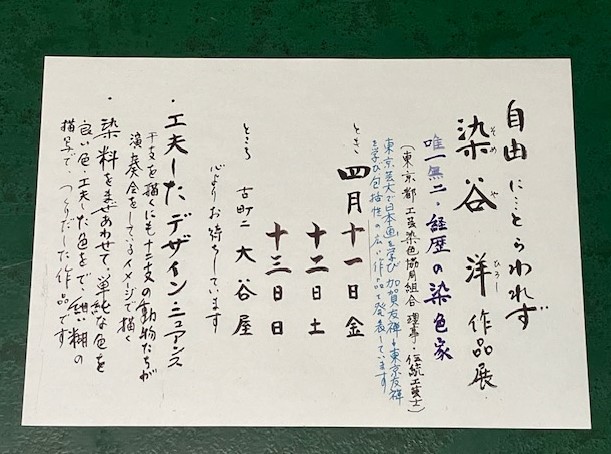 自由に…とらわれず
染谷 洋 作品展
そめ や ひろし
唯一無二・経歴の染色家
(東京都工芸染色協同組合 理事・伝統工芸士)
東京芸大で日本画を学び 加賀友禅・東京友禅
を学び包括性の広い作品を発表しています
とき 四月十一日 金
十二日 土
十三日 日
ところ 古町二 大谷屋
心よりお待ちしています
・工夫したデザイン・ニュアンス
干支を描くにも十二支の動物たちが
演奏会をしているイメージで描く
・染料をまぜあわせて、単純な色を
良い色・工夫した色をで 細い糊の
描写で、つくりだした作品です